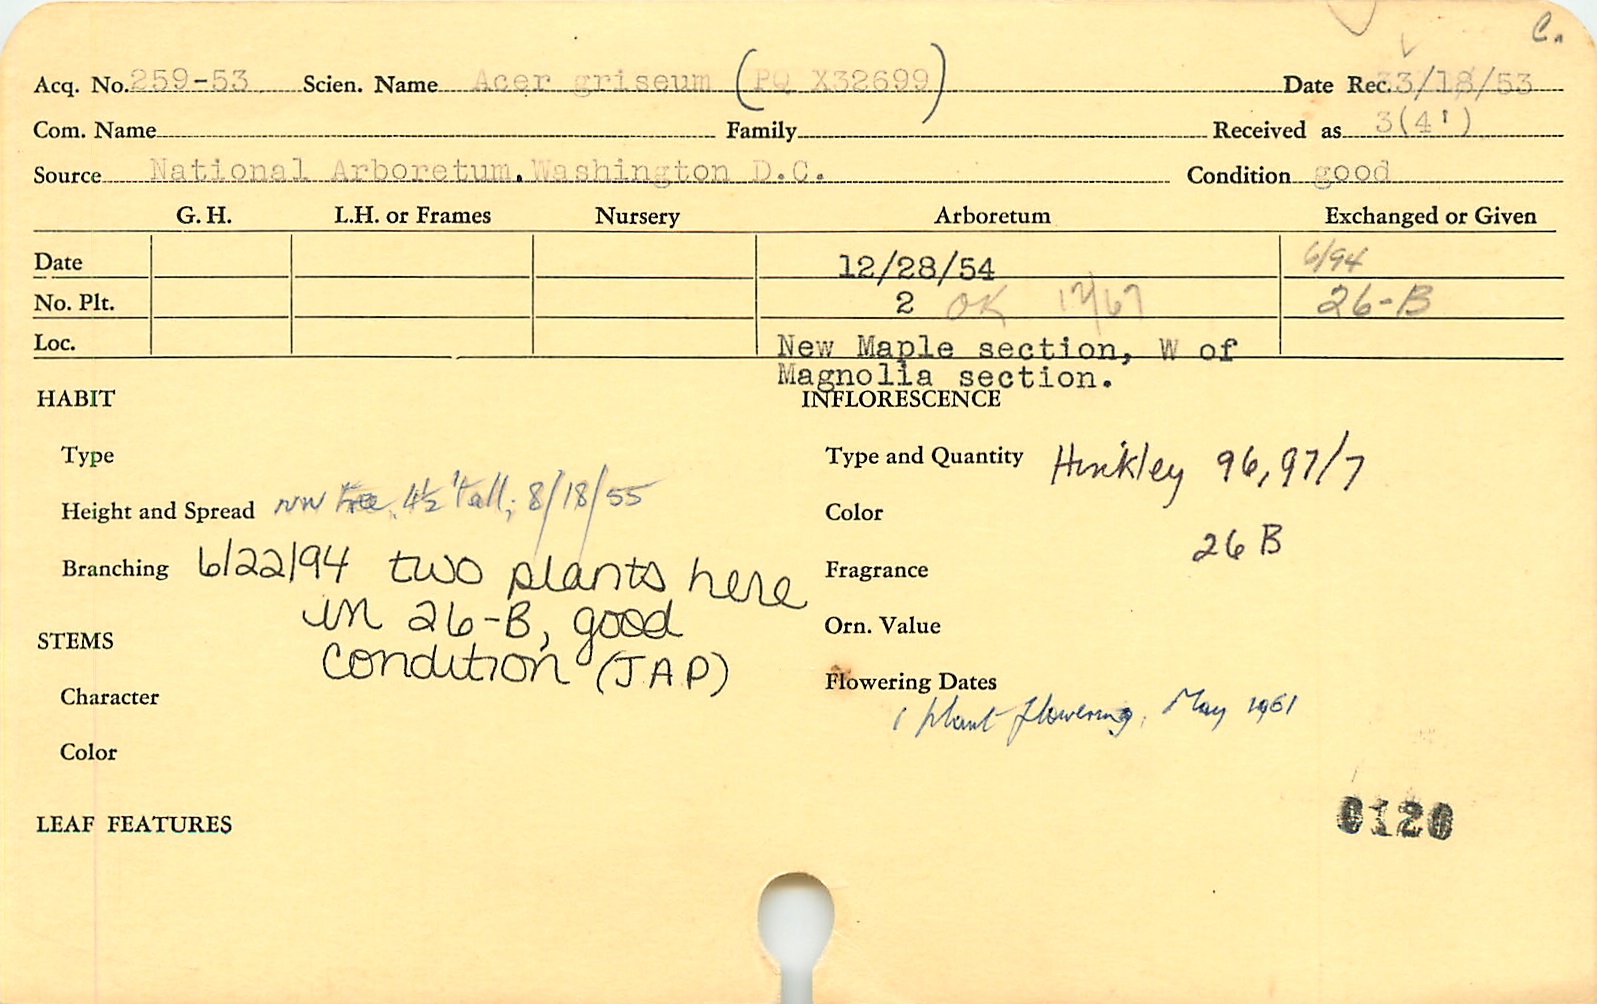 C.
Acq. No. 259-53 Scien. Name Acer griseum (PQ X32699) Date Rec. 3/18/53
Com. Name Family Received as 3(4')
Source National Arboretum, Washington D.C. Condition good
G. H. L.H. or Frames Nursery Arboretum Exchanged or Given
Date 12/28/54 6/94
No. Plt. 2 OK 12/67 26-B
Loc. New Maple section, W of
Magnolia section.
HABIT INFLORESCENCE
Type Type and Quantity Hinkley 96, 97/7
Height and Spread NW tree, 4½' tall; 8/18/55 Color
26 B
Branching 6/22/94 two plants here Fragrance
in 26-B, good Orn. Value
STEMS condition (JAP)
Character Flowering Dates
1 plant flowering, May 1961
Color
0120
LEAF FEATURES